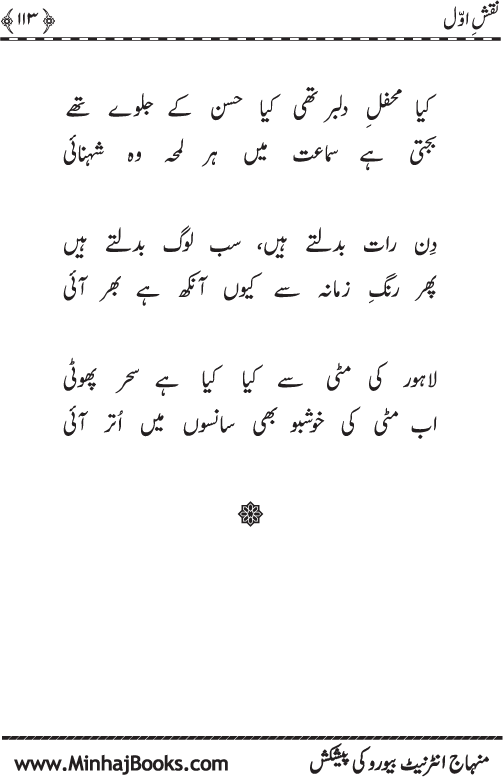 نقشِ اوّل
﴿۱۱۳﴾
کیا محفلِ دلبر تھی کیا حسن کے جلوے تھے
بجتی ہے سماعت میں ہر لمحہ وہ شہنائی
دِن رات بدلتے ہیں، سب لوگ بدلتے ہیں
پھر رنگِ زمانہ سے کیوں آنکھ ہے بھر آئی
لاہور کی مٹی سے کیا کیا ہے سحر پھوٹی
اب مٹی کی خوشبو بھی سانسوں میں اُتر آئی
منہاج انٹرنیٹ بیورو کی پیشکش
www.MinhajBooks.com